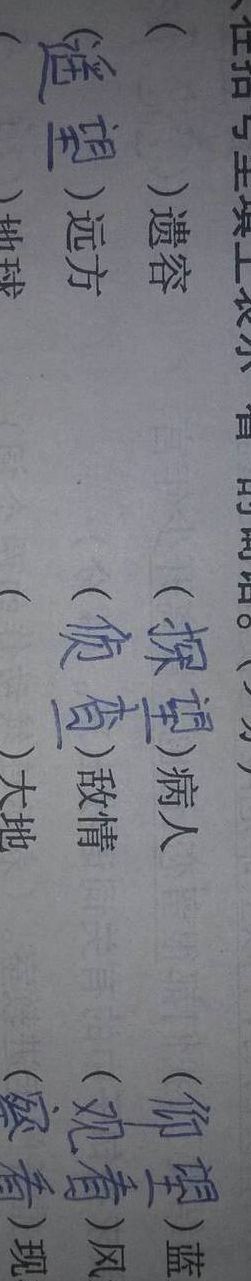 在括号里填上表示“看”的词语。(9分)
( )遗容 (探望)病人 (仰望)蓝
(遥望)远方 (侦查)敌情 (观看)风
( )地球 ( )大地 (察看)现